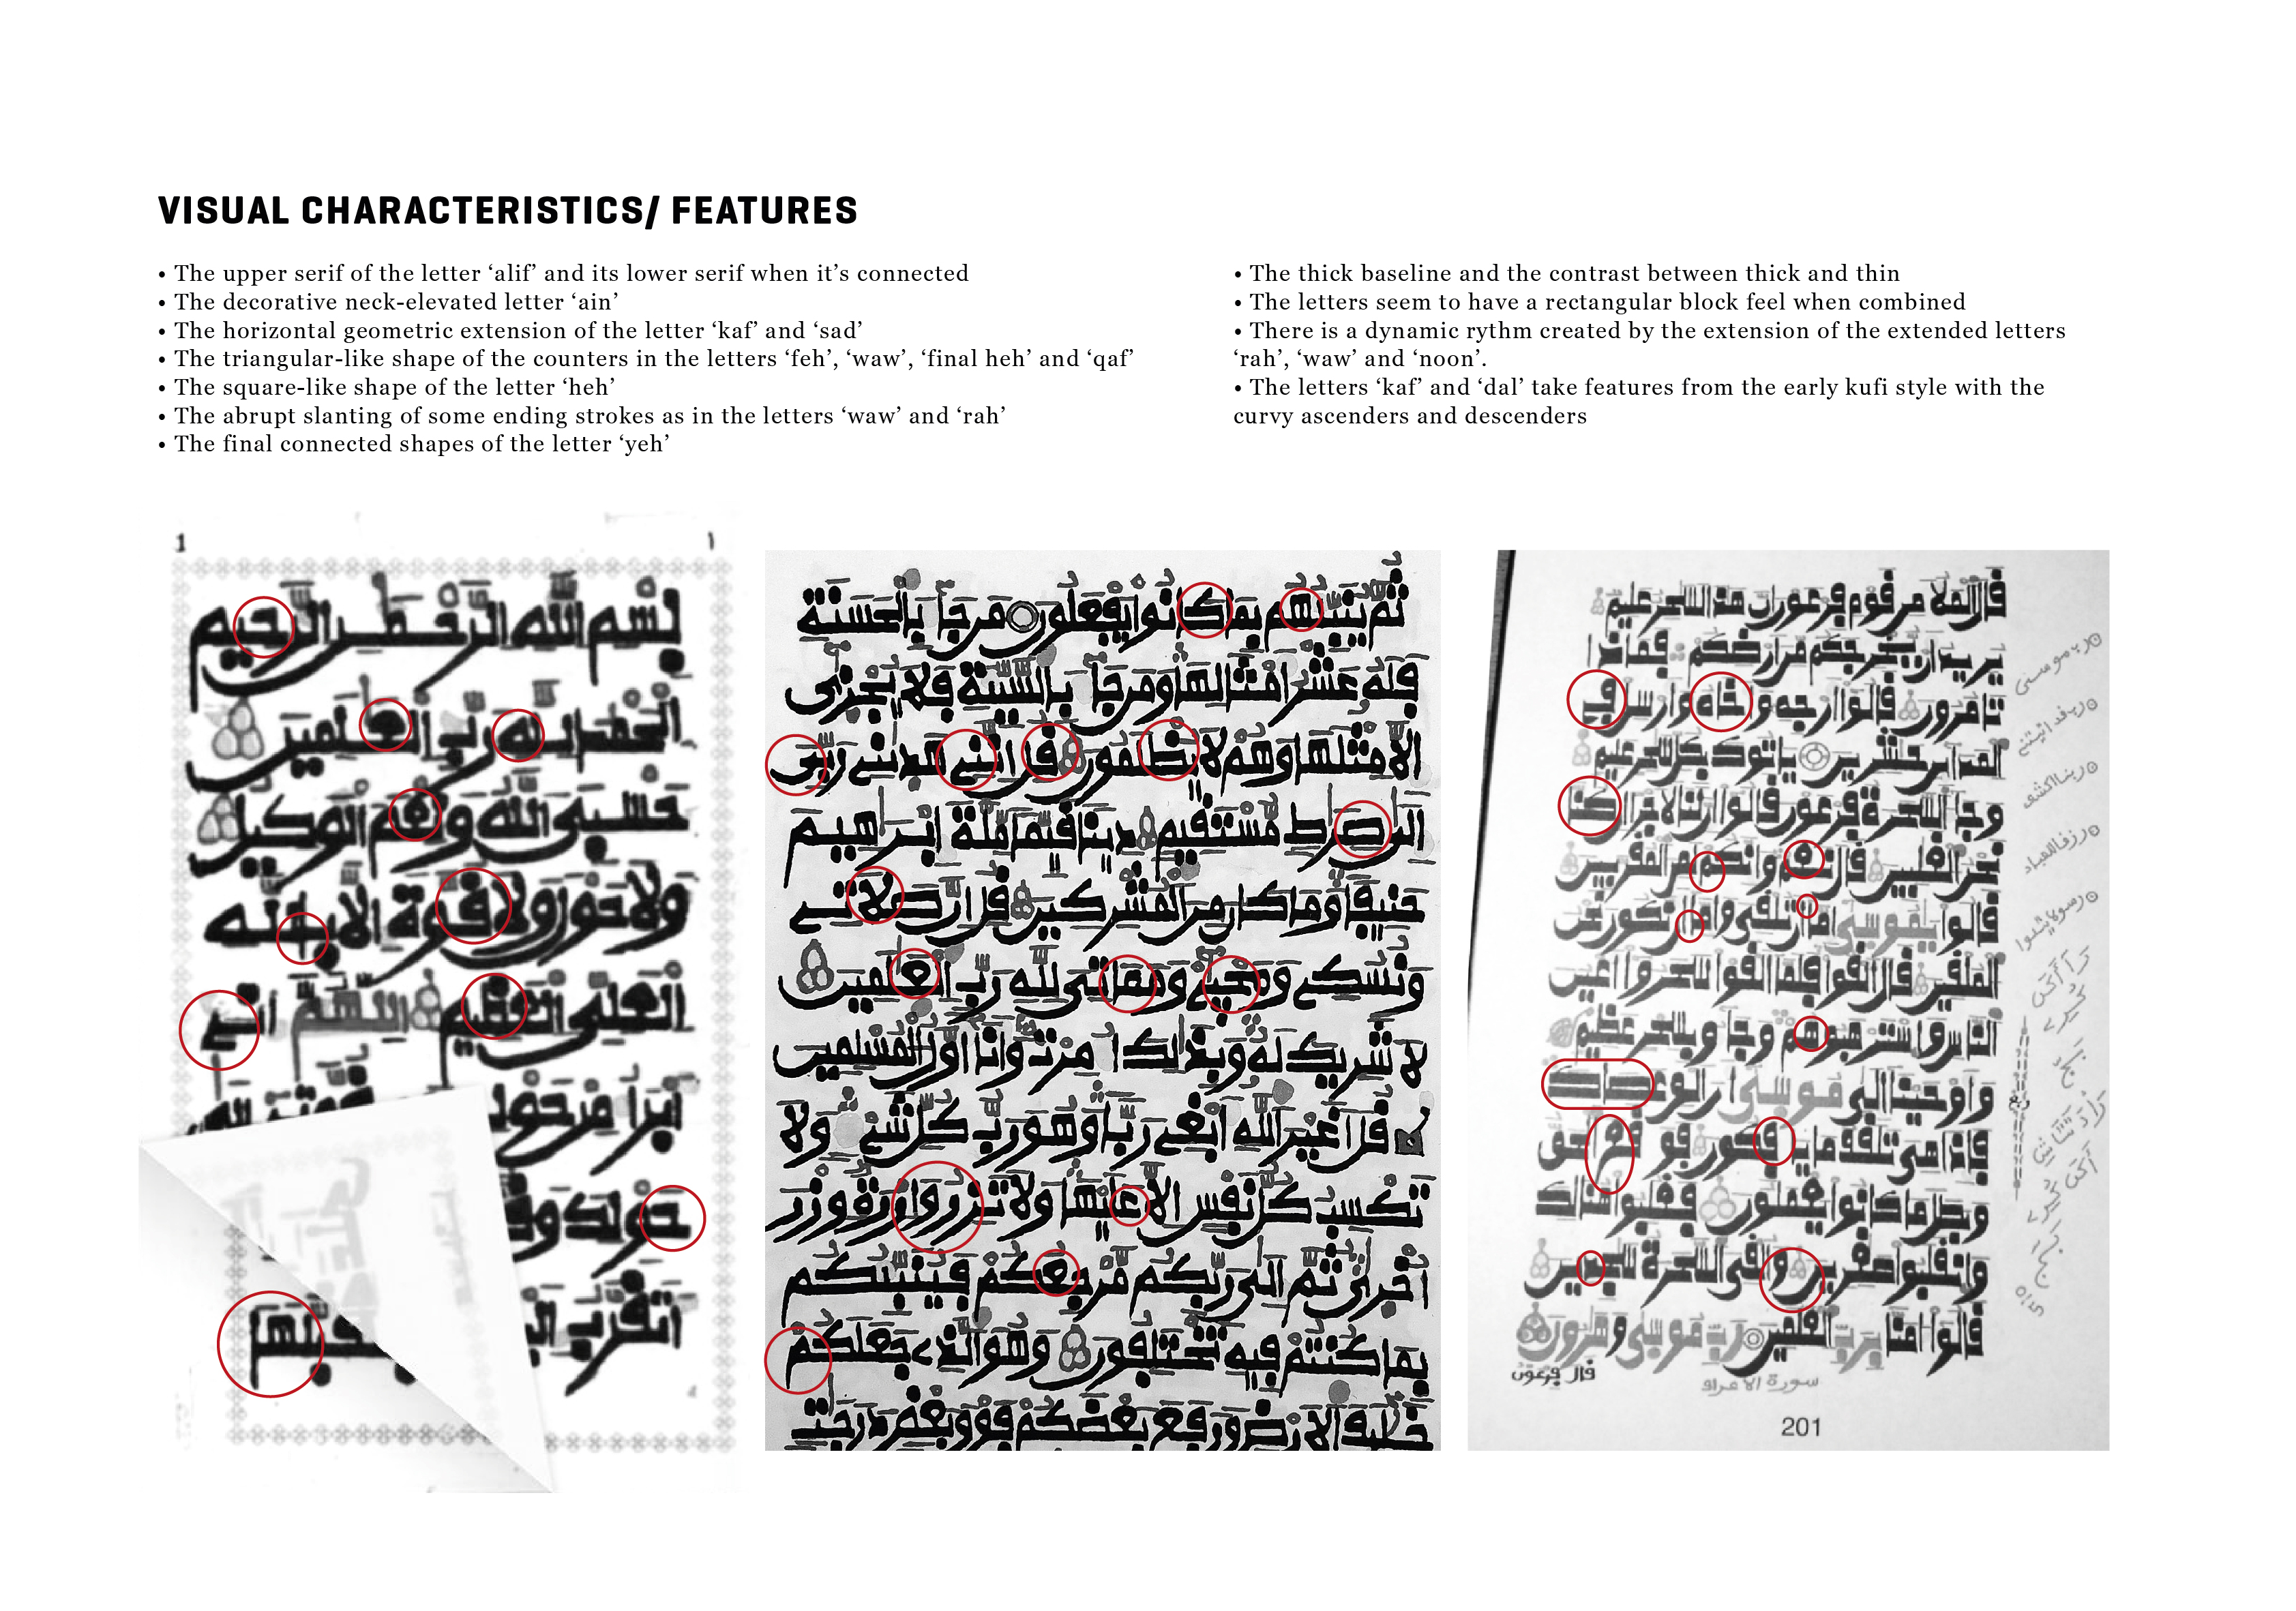 VISUAL CHARACTERISTICS/ FEATURES
• The upper serif of the letter ‘alif’ and its lower serif when it’s connected
• The decorative neck-elevated letter ‘ain’
• The horizontal geometric extension of the letter ‘kaf’ and ‘sad’
• The triangular-like shape of the counters in the letters ‘feh’, ‘waw’, ‘final heh’ and ‘qaf’
• The square-like shape of the letter ‘heh’
• The abrupt slanting of some ending strokes as in the letters ‘waw’ and ‘rah’
• The final connected shapes of the letter ‘yeh’
• The thick baseline and the contrast between thick and thin
• The letters seem to have a rectangular block feel when combined
• There is a dynamic rythm created by the extension of the extended letters
‘rah’, ‘waw’ and ‘noon’.
• The letters ‘kaf’ and ‘dal’ take features from the early kufi style with the
curvy ascenders and descenders
1 ١
بسم الله الرحمن الرحيم
الحمد لله رب العلمين
حسبي الله ونعم الوكيل
ولا حول ولا قوة الا بالله
العلي العظيم اللهم اني
ابرا من حولي
حولك
اتقرب
ثم ينبئهم بما كانوا يفعلون من جا بالحسنة
فله عشر امثالها ومن جا بالسيئة فلا يجزى
الا مثلها وهم لا يظلمون قل انني هديني ربي
الى صراط مستقيم دينا قيما ملة ابرهيم
حنيفا وما كان من المشركين قل ان صلاتي
ونسكي ومحياي ومماتي لله رب العلمين
لا شريك له وبذلك امرت وانا اول المسلمين
قل اغير الله ابغي ربا وهو رب كل شي ولا
تكسب كل نفس الا عليها ولا تزر وازرة وزر
اخرى ثم الى ربكم مرجعكم فينبئكم
بما كنتم فيه تختلفون وهو الذي جعلكم
خليف الارض ورفع بعضكم فوق بعض درجت
قال الملا من قوم فرعون ان هذا لسحر عليم
يريد ان يخرجكم من ارضكم فماذا
تامرون قالوا ارجه واخاه وارسل في
المداين حشرين ياتوك بكل سحر عليم
وجا السحرة فرعون قالوا ان لنا لاجرا ان كنا
نحن الغلبين قال نعم وانكم لمن المقربين
قالوا يموسى اما ان تلقي واما ان نكون نحن
الملقين قال القوا فلما القوا سحروا اعين
الناس واسترهبوهم وجاو بسحر عظيم
واوحينا الى موسى ان الق عصاك
فاذا هي تلقف ما يافكون فوقع الحق
وبطل ما كانوا يعملون فغلبوا هنالك
وانقلبوا صغرين والقي السحرة سجدين
قالوا امنا برب العلمين رب موسى وهرون
قال فرعون
سورة الاعراف
201